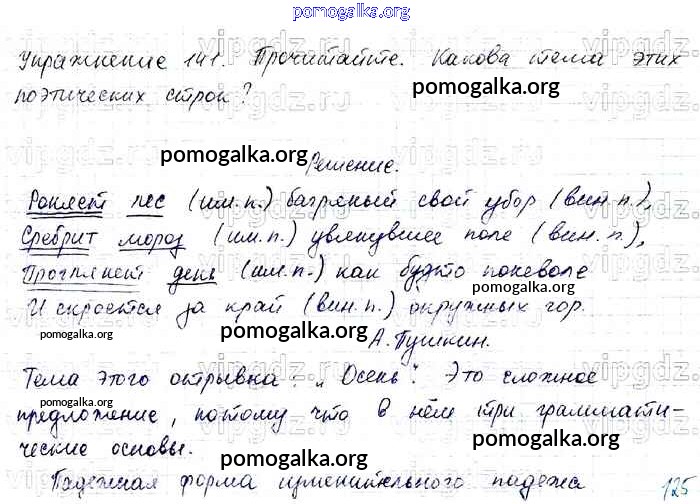 pomogalka.org
Упражнение 141. Прочитайте. Какова тема этих
pomogalka.org
поэтических строк?
pomogalka.org
Решение.
Роняет лес (им.п.) багряный свой убор (вин.п.),
Сребрит мороз (им.п.) увянувшее поле (вин.п.),
Проглянет день (им.п.) как будто поневоле
И скроется за край (вин.п.) окружных гор.
pomogalka.org
pomogalka.org
А. Пушкин.
Тема этого отрывка: „Осень". Это сложное
pomogalka.org
предложение, потому что в нём три граммати-
ческие основы.
pomogalka.org
Падежная форма именительного падежа
125